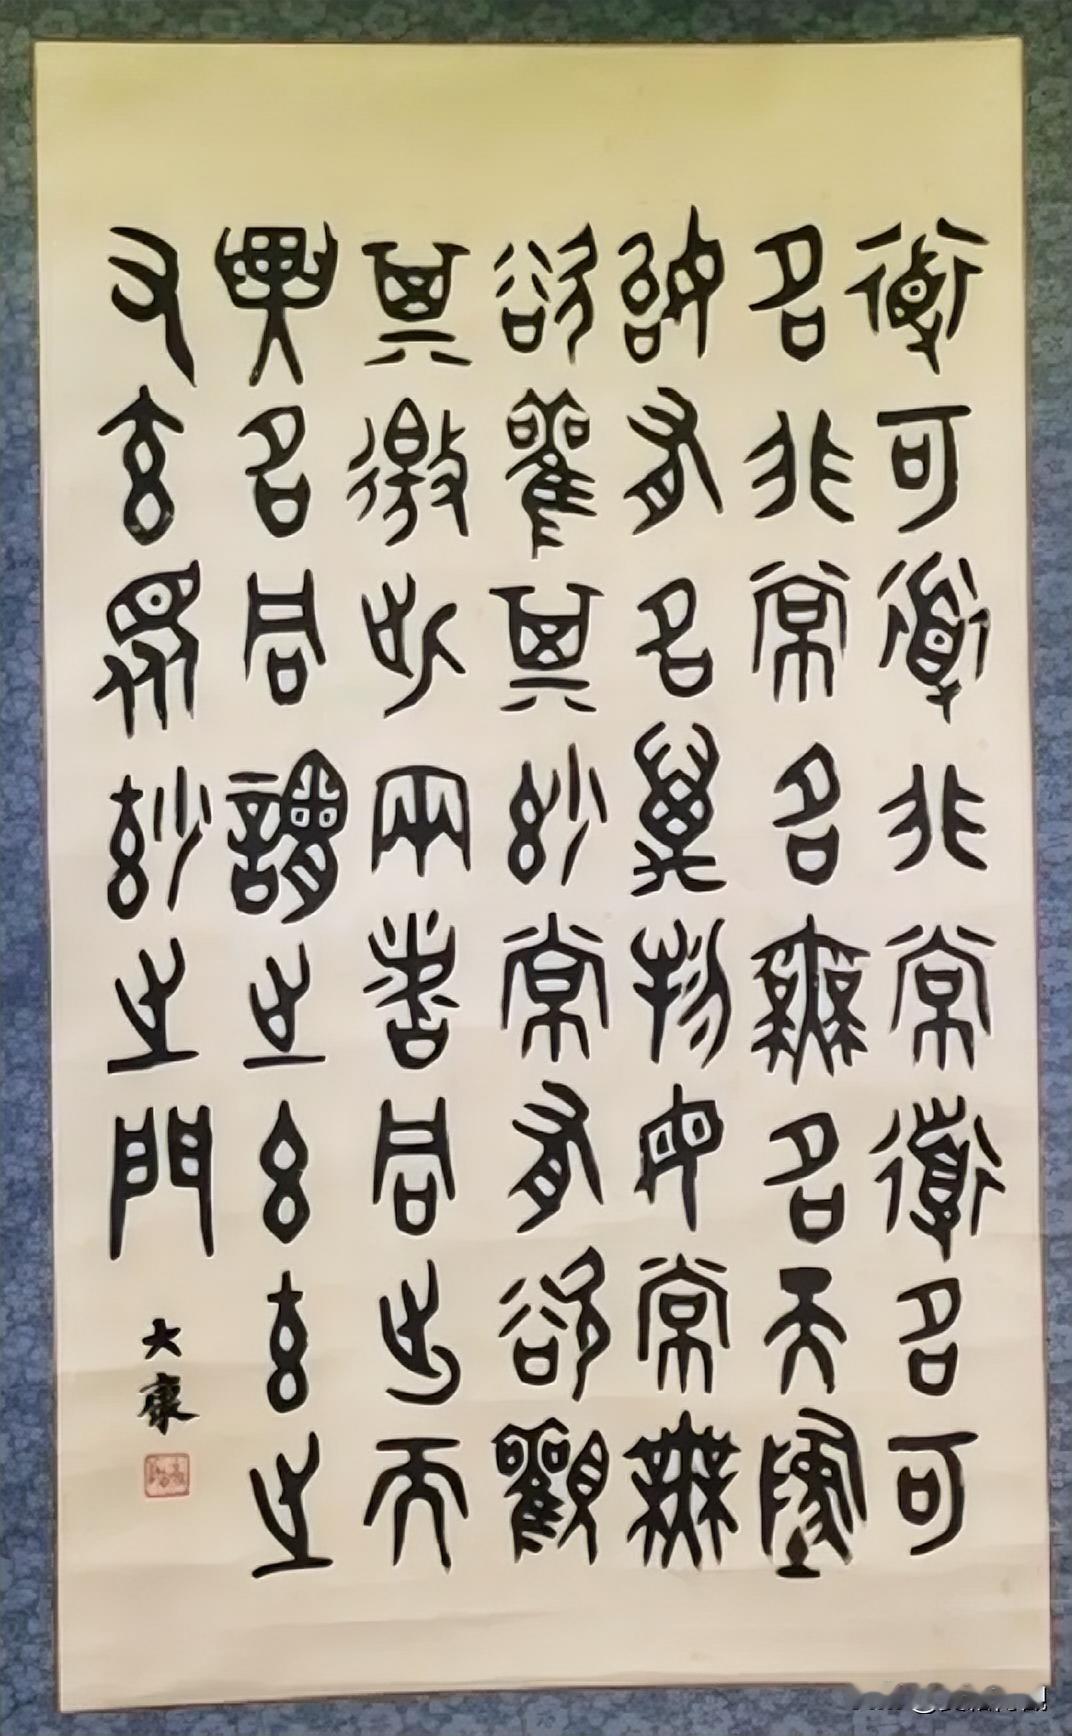 道可道非常道名可
名非常名無名天地
始有名萬物母常無
欲觀其妙常有欲觀
其徼此兩者同出而
異名同謂之玄玄之
又玄眾妙之門
大康